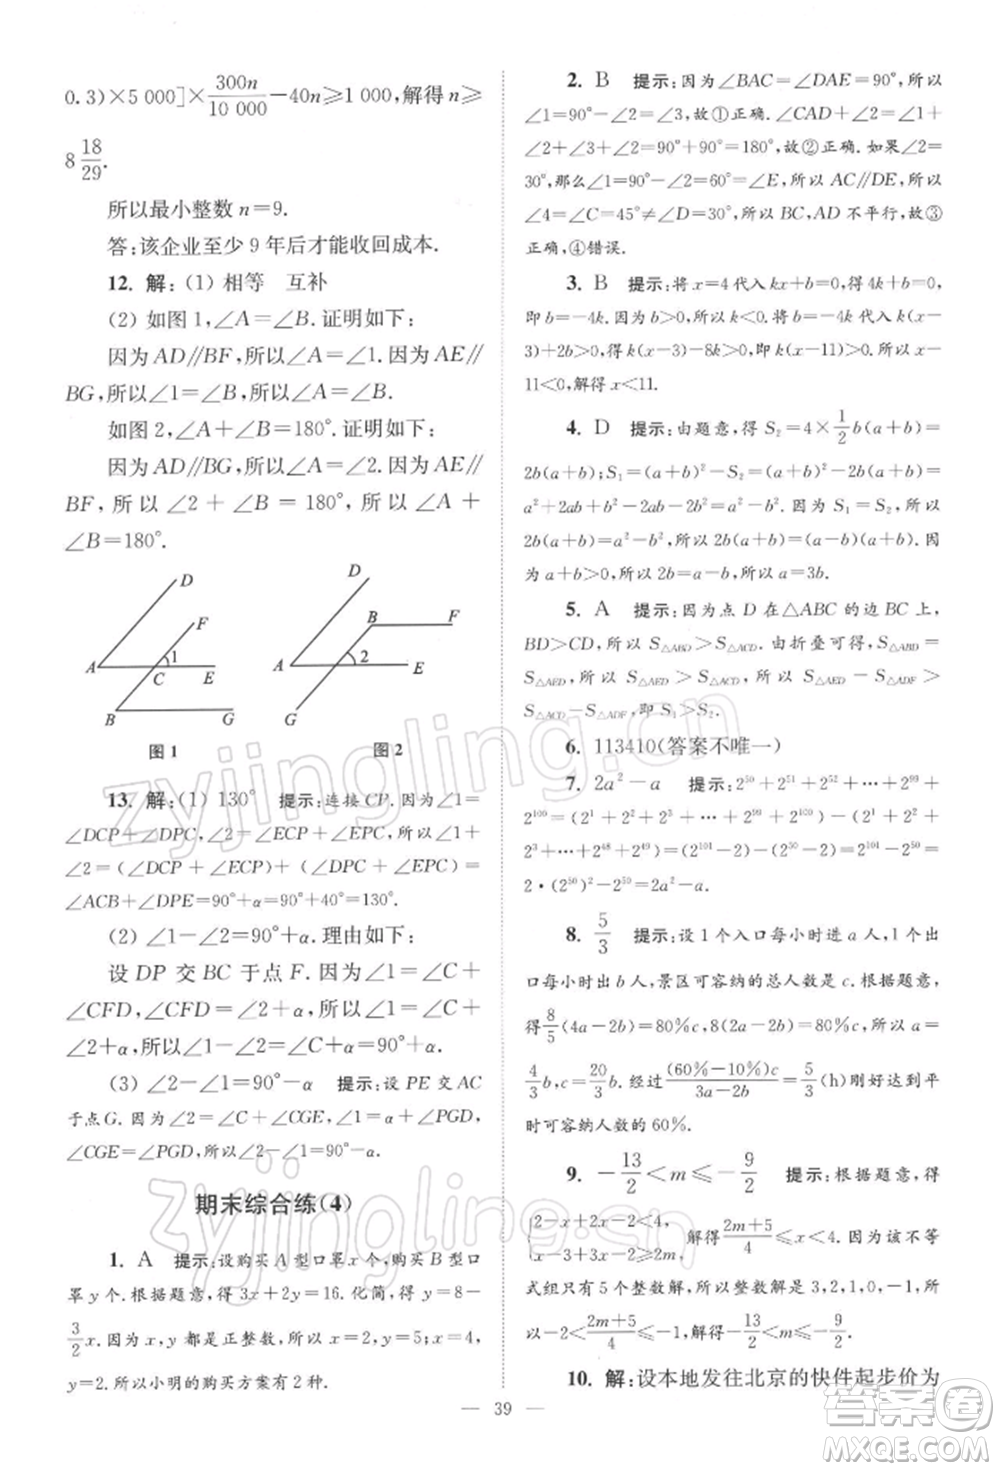 0.3)×5 000]×300n/10 000−40n≥1 000,解得 n≥
8 18/29.
所以最小整数 n=9.
答:该企业至少 9 年后才能收回成本.
12. 解:(1) 相等 互补
(2) 如图 1,∠A=∠B. 证明如下:
因为 AD∥BF,所以∠A=∠1. 因为 AE∥
BG,所以∠1=∠B,所以∠A=∠B.
如图 2,∠A+∠B=180°. 证明如下:
因为 AD∥BG,所以∠A=∠2. 因为 AE∥
BF, 所以∠2 + ∠B = 180°, 所以∠A +
∠B=180°.
D
F
A
1
C
E
B
G
图 1
D
B
F
A
2
E
G
图 2
13. 解:(1) 130° 提示:连接 CP. 因为∠1=
∠DCP+∠DPC,∠2=∠ECP+∠EPC,所以∠1+
∠2=(∠DCP+∠ECP)+(∠DPC+∠EPC)=
∠ACB+∠DPE=90°+α=90°+40°=130°.
(2) ∠1−∠2=90°+α. 理由如下:
设 DP 交 BC 于点 F. 因为∠1=∠C+
∠CFD,∠CFD=∠2+α,所以∠1=∠C+
∠2+α,所以∠1−∠2=∠C+α=90°+α.
(3) ∠2−∠1=90°−α 提示:设 PE 交 AC
于点 G. 因为∠2=∠C+∠CGE,∠1=α+∠PGD,
∠CGE=∠PGD,所以∠2−∠1=90°−α.
期末综合练(4)
1. A 提示:设购买 A 型口罩 x 个,购买 B 型口
罩 y 个. 根据题意,得 3x+2y=16. 化简,得 y=8−
3/2x. 因为 x,y 都是正整数,所以 x=2,y=5;x=4,
y=2. 所以小明的购买方案有 2 种.
2. B 提示:因为∠BAC=∠DAE=90°,所以
∠1=90°−∠2=∠3,故①正确. ∠CAD+∠2=∠1+
∠2+∠3+∠2=90°+90°=180°,故②正确. 如果∠2=
30°,那么∠1=90°−∠2=60°=∠E,所以 AC∥DE,所以
∠4=∠C=45°≠∠D=30°,所以 BC,AD 不平行,故③
正确,④错误.
3. B 提示:将 x=4 代入 kx+b=0,得 4k+b=0,
即 b=−4k. 因为 b>0,所以 k<0. 将 b=−4k 代入 k(x−
3)+2b>0,得 k(x−3)−8k>0,即 k(x−11)>0. 所以 x−
11<0,解得 x<11.
4. D 提示:由题意,得 S₂=4×1/2b(a+b)=
2b(a+b);S₁=(a+b)²−S₂=(a+b)²−2b(a+b)=
a²+2ab+b²−2ab−2b²=a²−b². 因为 S₁=S₂,所以
2b(a+b)=a²−b²,所以 2b(a+b)=(a−b)(a+b). 因
为 a+b>0,所以 2b=a−b,所以 a=3b.
5. A 提示:因为点 D 在△ABC 的边 BC 上,
BD>CD,所以 S△ABD>S△ACD. 由折叠可得,S△ABD=
S△AED,所以 S△AED > S△ACD,所以 S△AED − S△ADF >
S△ACD−S△ADF,即 S₁>S₂.
6. 113410(答案不唯一)
7. 2a²−a 提示:2⁵⁰+2⁵¹+2⁵²+…+2⁹⁹+
2¹⁰⁰=(2¹+2²+2³+…+2⁹⁹+2¹⁰⁰)−(2¹+2²+
2³+…+2⁴⁸+2⁴⁹)=(2¹⁰¹−2)−(2⁵⁰−2)=2¹⁰¹−2⁵⁰=
2·(2⁵⁰)²−2⁵⁰=2a²−a.
8. 5/3 提示:设 1 个入口每小时进 a 人,1 个出
口每小时出 b 人,景区可容纳的总人数为 c. 根据题意,
得8/5(4a−2b)=80%c,8(2a−2b)=80%c,所以 a=
4/3b,c=20/3b. 经过(60%−10%)c/3a−2b=5/3(h)刚好达到平
时可容纳人数的 60%.
9. −13/2<m≤−9/2 提示:根据题意,得
{2−x+2−x+2<4, 3−x+3−x+3≥2m, 解得 2m+5/4≤x<4. 因为该不等
式组只有 5 个整数解,所以整数解为 3,2,1,0,−1,所
以−2<2m+5/4≤−1,解得−13/2<m≤−9/2.
10. 解:设本地发往北京的快件起步价为
39
zyjingling.cn
zyjingling.cn
答案圈
MXQE.COM